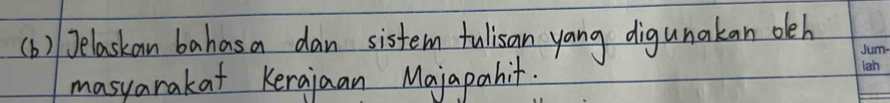 (b) Jelaskan bahasa dan sistem tulisan yang digunakan oleh
masyarakat Kerajaan Majapahit.
Jum-
lah